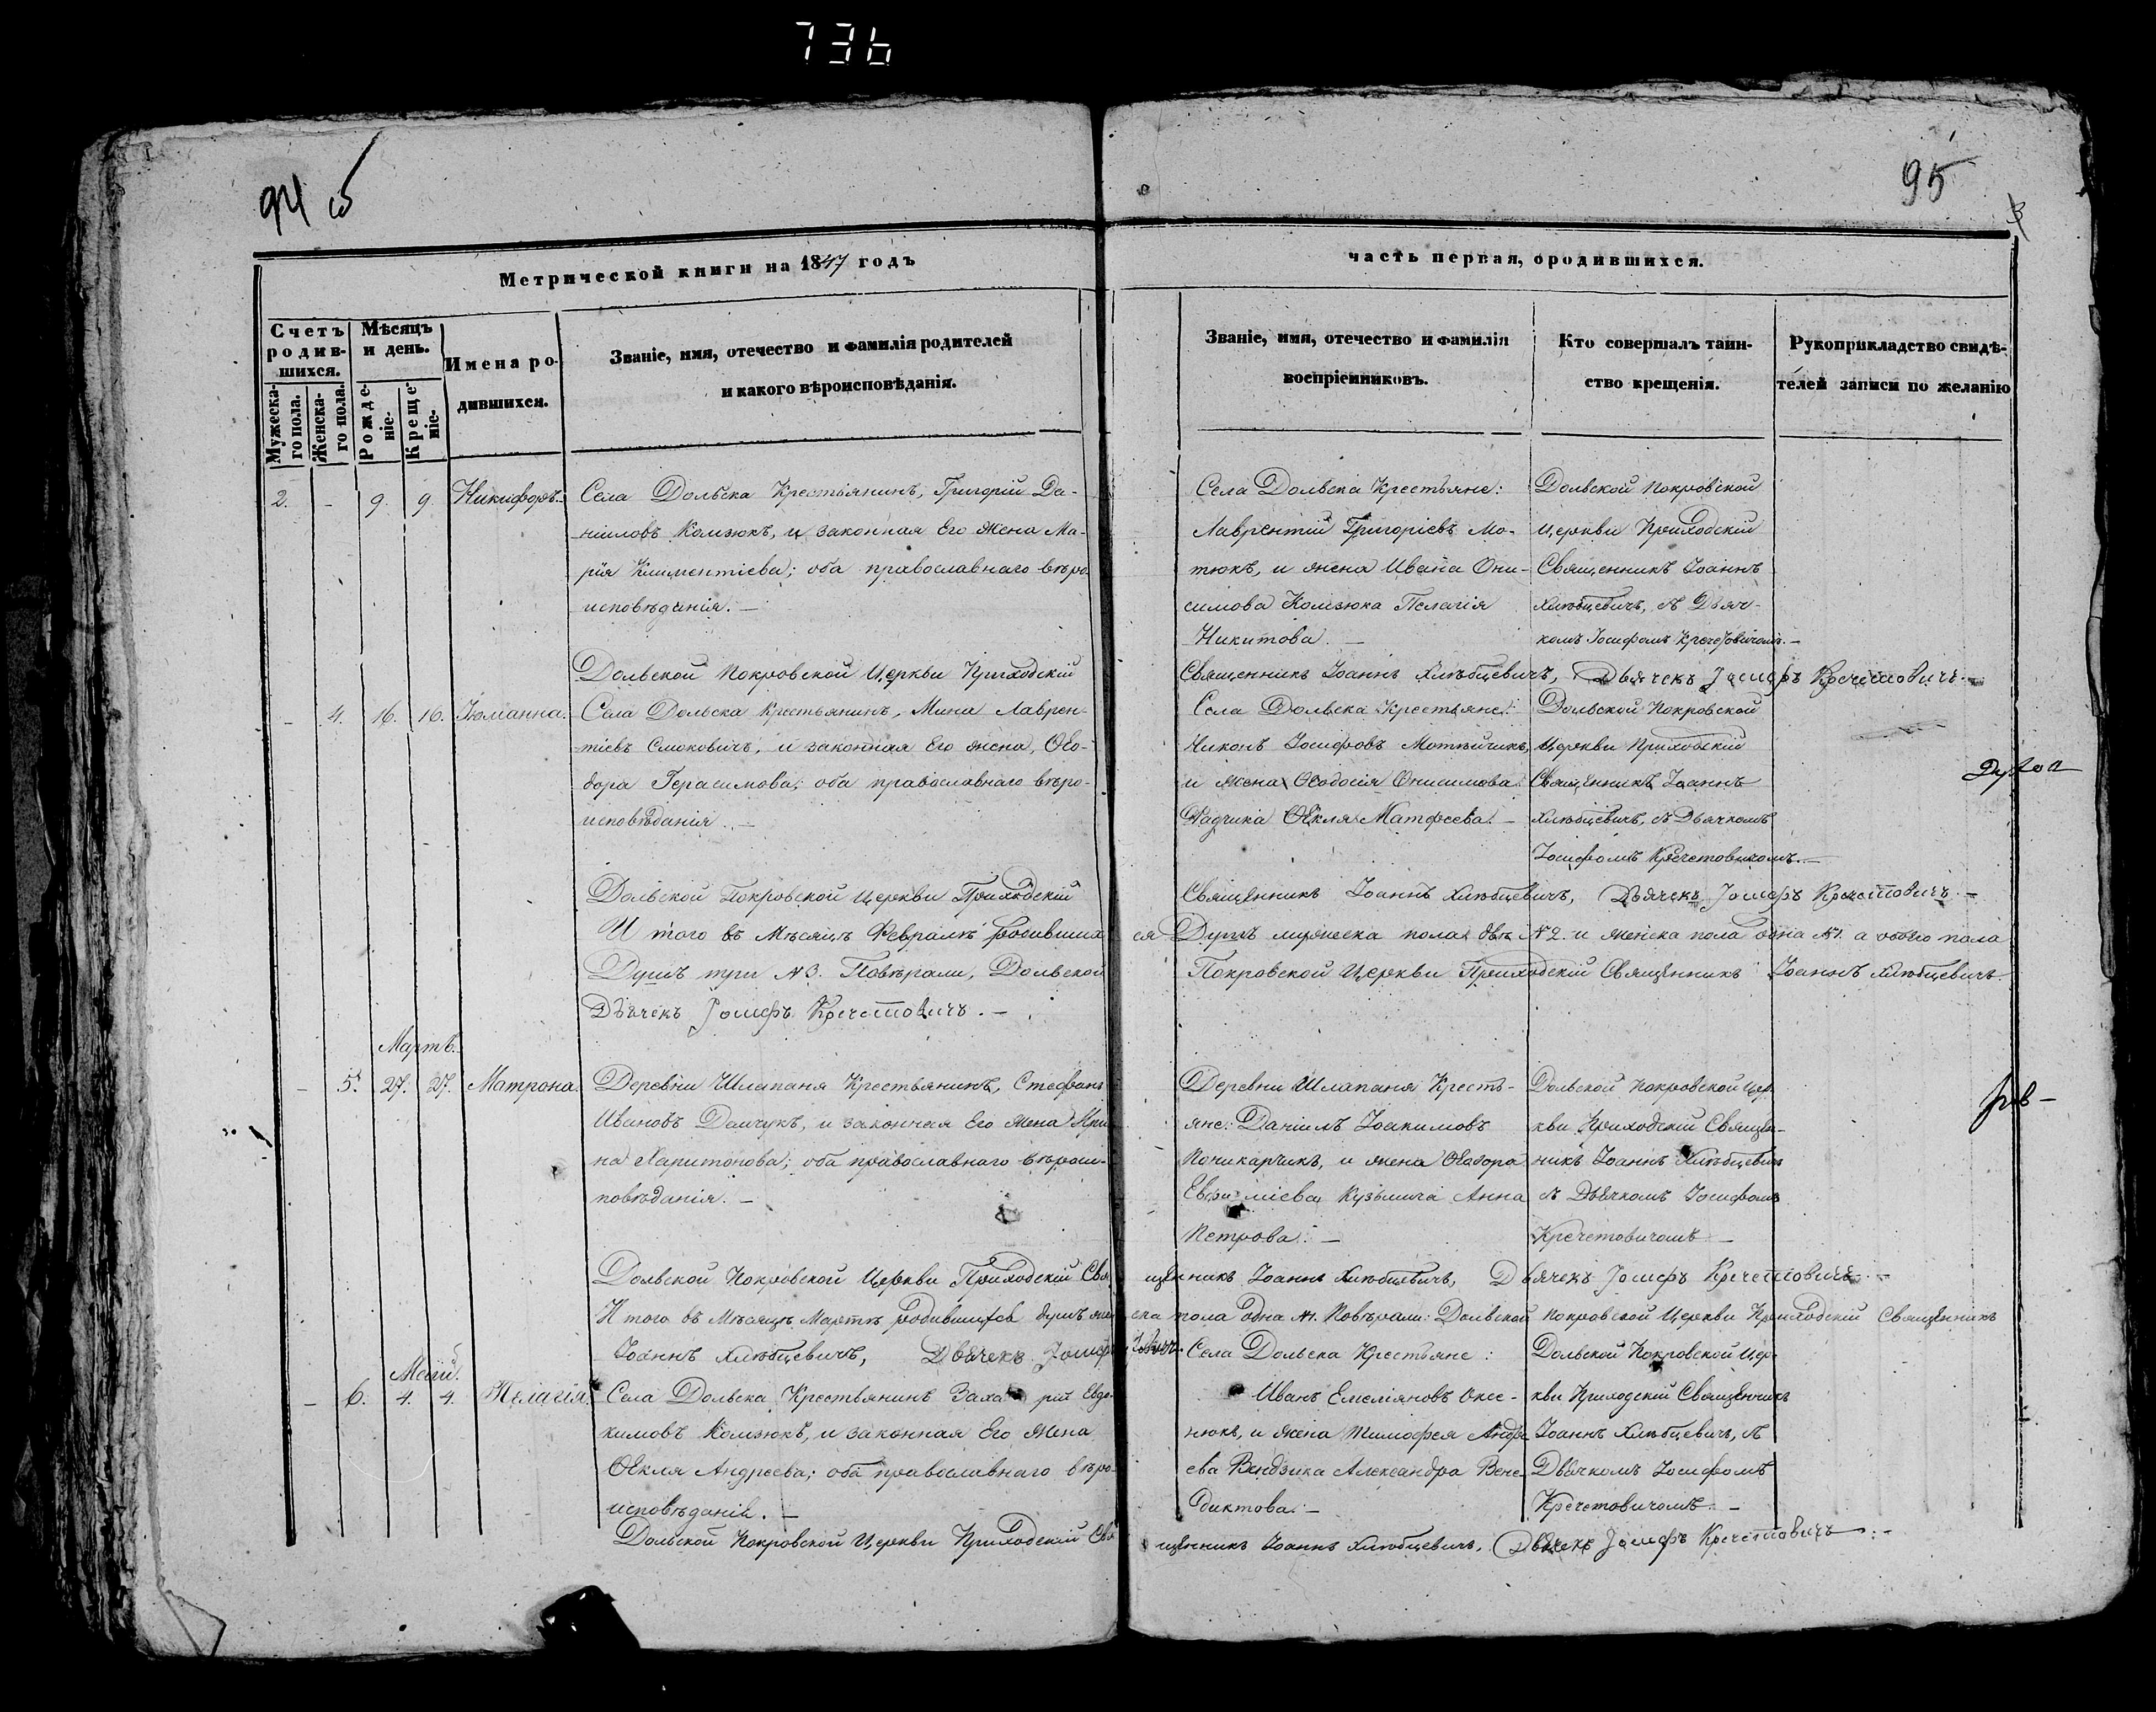 736
94 об
95
3
Метрической книги на 1847 годъ
часть первая, ородившихся.
Счетъ родив-
шихся.
Мужеска-
го пола.
Женска-
го пола.
Мѣсяцъ
и день.
Рожде-
ніе.
Креще
ніе.
Имена ро-
дившихся.
Званіе, имя, отечество и фамилія родителей
и какого вѣроисповѣданія.
Званіе, имя, отечество и фамилія
воспріемниковъ.
Кто совершалъ таин-
ство крещенія.
Рукоприкладство свидѣ-
телей записи по желанію
2. - 9. 9. Никифоръ.
Села Дольска Крестьянинъ, Григорій Да-
ніиловъ Комзюкъ, и законная Его жена Ма-
рія Климентіева; оба православнаго вѣро-
исповѣданія. —
Села Дольска Крестьяне:
Лаврентій Григоріевъ Мо-
тюкъ, и жена Ивана Они-
симова Комзюка Пелагія
Никитова. —
Дольской Покровской
Церкви Приходскій
Священникъ Іоаннъ
Хлѣбцевичъ, съ Дьяч-
комъ Іосифомъ Кречетовичомъ. —
Дольской Покровской Церкви Приходскій
Священникъ Іоаннъ Хлѣбцевичъ, Дьячекъ Іосифъ Кречетовичъ. —
- 4. 16. 16. Іюліанна.
Села Дольска Крестьянинъ, Мина Лаврен-
тіевъ Смоковичъ, и законная Его жена, Ѳео-
дора Герасимова; оба православнаго вѣро-
исповѣданія. —
Села Дольска Крестьяне:
Никонъ Іосифовъ
и жена Ѳеодосія Онисимова
Ѳекля Матфеева. —
Дольской Покровской
Церкви Приходскій
Священникъ Іоаннъ
Хлѣбцевичъ, съ Дьячкомъ
Іосифомъ Кречетовичомъ. —
Дольской Покровской Церкви Приходскій
Священникъ Іоаннъ Хлѣбцевичъ, Дьячекъ Іосифъ Кречетовичъ. —
И того въ Мѣсяцѣ Февралѣ родивших ся Душъ мужеска пола двѣ №2. и женска пола одна №1. а обоего пола
Душъ три №3. Повѣряли, Дольской Покровской Церкви Приходскій Священникъ Іоаннъ Хлѣбцевичъ
Дьячекъ Іосифъ Кречетовичъ. —
Мартъ.
- 5. 27. 27. Матрона.
Деревни Шлапаня Крестьянинъ, Стефанъ
Ивановъ Демчукъ, и законная Его жена Ири
на Харитонова; оба православнаго вѣрои-
повѣданія. —
Деревни Шлапаня Кресть-
яне: Даніилъ Іоакимовъ
и жена Ѳеодора
Кузьмича Анна
Петрова. —
Дольской Покровской Цер
кви Приходскій Священ-
никъ Іоаннъ Хлѣбцевичъ
съ Дьячкомъ Іосифомъ
Кречетовичомъ —
Дольской Покровской Церкви Приходскій Свя щенникъ Іоаннъ Хлѣбцевичъ, Дьячекъ Іосифъ Кречетовичъ. —
И того въ Мѣсяцѣ Мартѣ родившихся душъ жен ска пола одна №1. Повѣряли: Дольской Покровской Церкви Приходскій Священникъ
Іоаннъ Хлѣбцевичъ, Дьячекъ Іосифъ
Маій.
- 6. 4. 4. Пелагія.
Села Дольска Крестьянинъ Заха рій Евдо-
кимовъ Комзюкъ, и законная Его жена
Ѳекля Андреева; оба православнаго вѣро-
исповѣданія. —
Села Дольска Крестьяне:
Иванъ Емеліяновъ Оксе-
нюкъ, и жена Тимофея Андре
ева Вендзика Александра Вене-
диктова. —
Дольской Покровской Цер-
кви Приходскій Священникъ
Іоаннъ Хлѣбцевичъ, съ
Дьячкомъ Іосифомъ
Кречетовичомъ. —
Дольской Покровской Церкви Приходскій Свя щенникъ Іоаннъ Хлѣбцевичъ, Дьячекъ Іосифъ Кречетовичъ. —